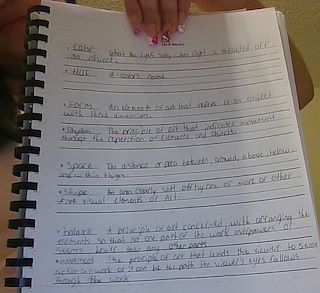 • Color What the eyes sees when light is reflected off
an object.
• HUE A color's name
• Form An element of art that refers to an object
with three dimensions.
• Rhythm The principle of art that indicates movement
through the repetition of elements and objects.
• Space The distance or area between, around, above, below
and within things.
• Shape An area clearly sett off by one or more or other
five visual elements of Art.
• Balance A principle of art concerned with arranging the
elements so that no one part of the work overpowers or
seems than any other parts
• movement The principle of art that leads the viewer to sense
action in work or it can be the path the viewer's eyes follows
through the work